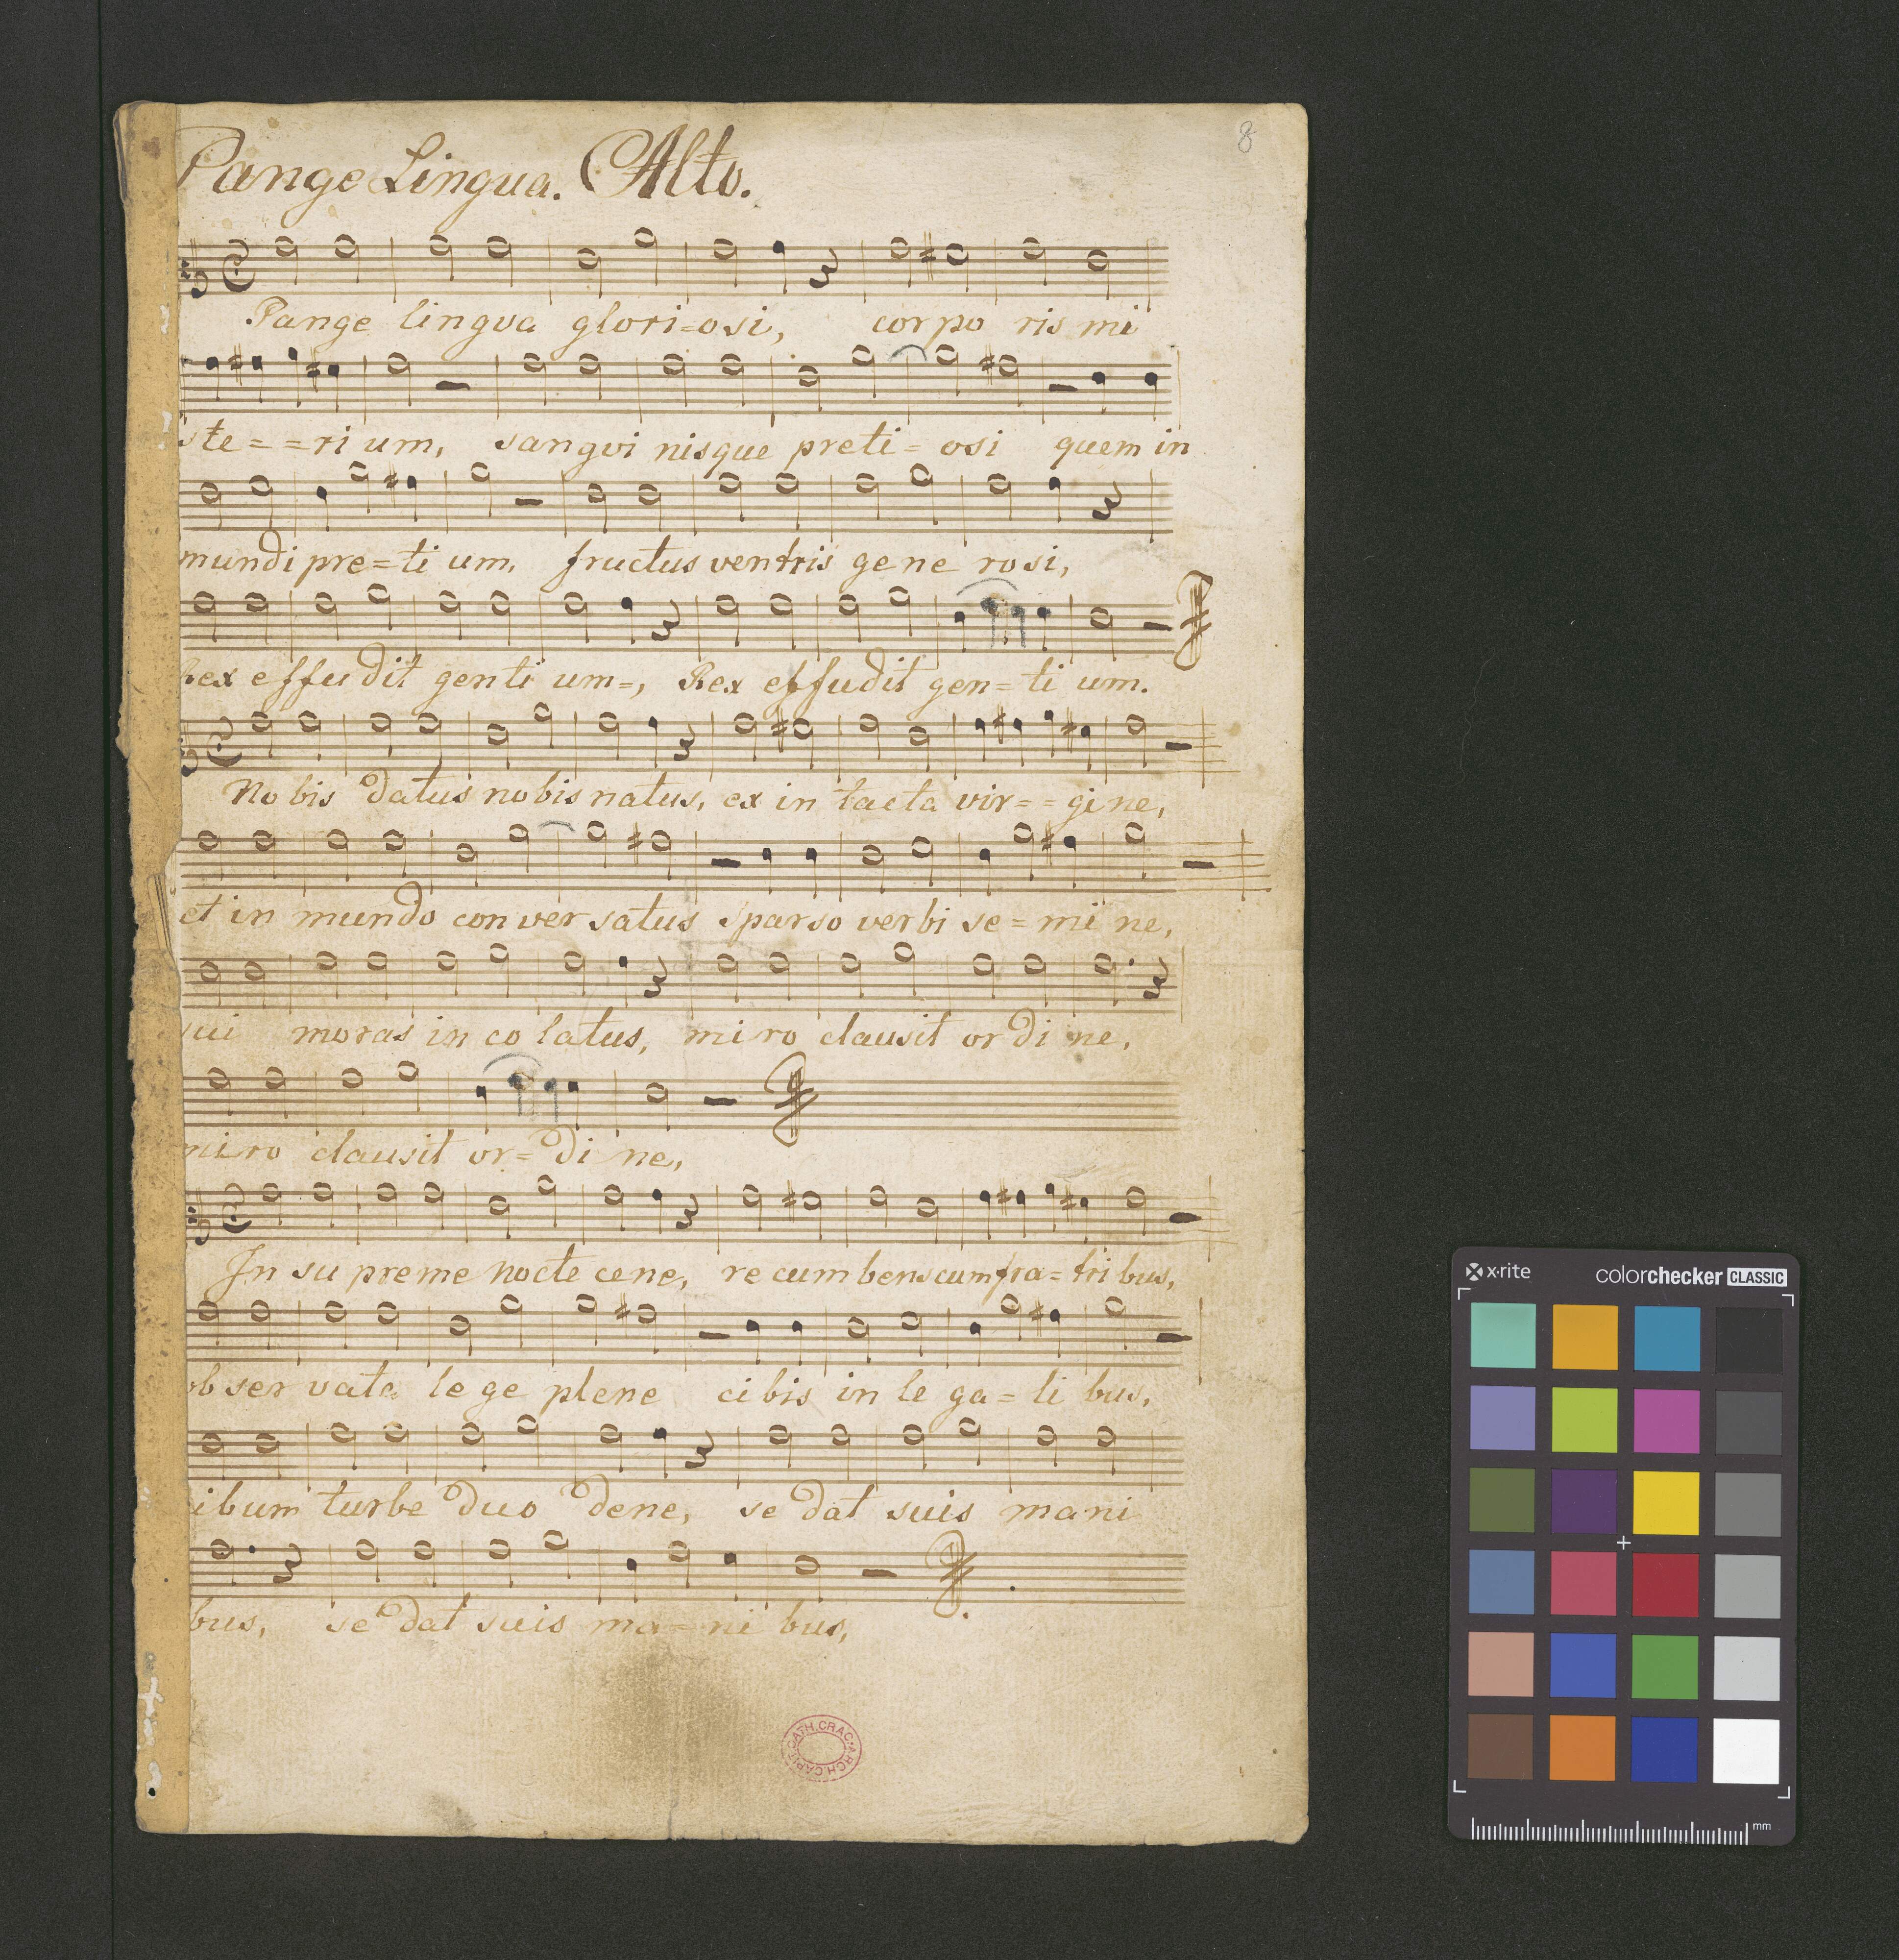 8
Pange Lingua. Alto.
Pange lingva glori=osi, corpo ris mi
ste==ri um, sangvi nisque preti=osi quem in
mundi pre=ti um, fructus ventris gene rosi,
Rex effudit genti um=, Rex effudit gen=ti um.
No bis datus nobis natus, ex in tacta vir==gi ne,
et in mundo con ver satus sparso verbi se=mi ne,
sui moras in co latus, mi ro clausit or di ne,
miro clausit or=di ne,
In su preme nocte cene, re cum bens cum fra=tri bus,
ob ser vata le ge plene ci bis in le ga=li bus,
ibum turbe duo dene, se dat suis mani
bus, se dat suis ma=ni bus,
ARCH. CAPIT. CATH. CRAC.
x·rite colorchecker CLASSIC
mm